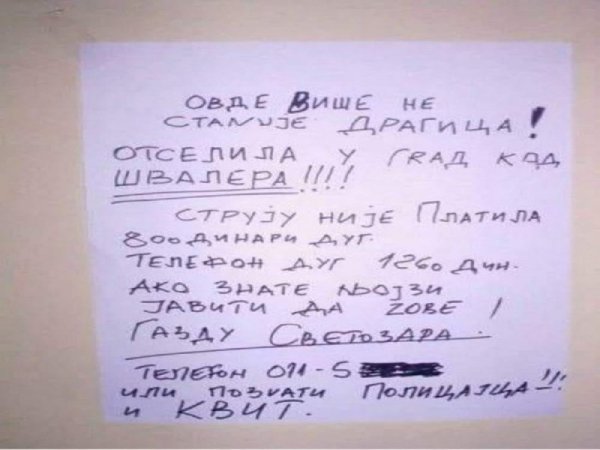 ОВДЕ ВИШЕ НЕ
СТАНУЈЕ ДРАГИЦА!
ОТСЕЛИЛА У ГРАД КОД
ШВАЛЕРА!!!!
СТРУЈУ НИЈЕ ПЛАТИЛА
800 ДИНАРИ ДУГ.
ТЕЛЕФОН ДУГ 1260 ДИН.
АКО ЗНАТЕ ЊОЈЗИ
ЈАВИТИ ДА ZОВЕ!
ГАЗДУ СВЕТОЗАРА.
ТЕЛЕФОН 011-5
ИЛИ ПОЗVАТИ ПОЛИЦАЈЦА!!!
И КВИТ.